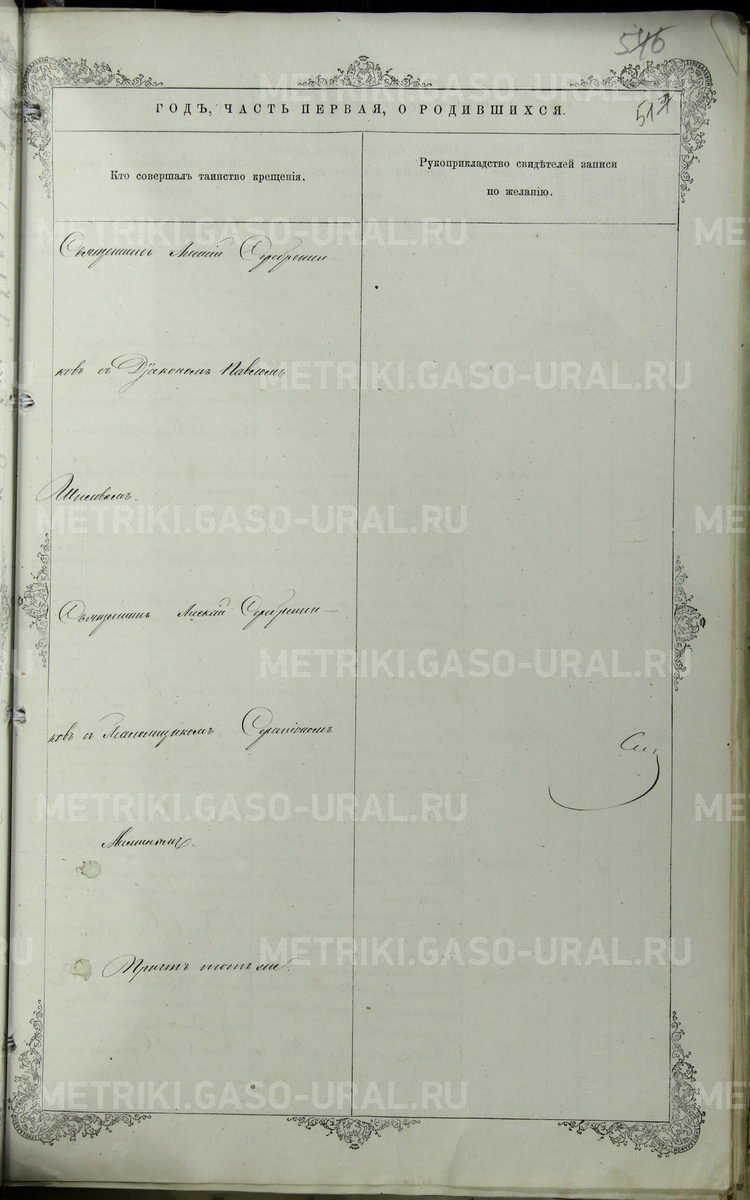 546
517
ГОДЪ, ЧАСТЬ ПЕРВАЯ, О РОДИВШИХСЯ.
Кто совершалъ таинство крещенія.
Рукоприкладство свидѣтелей записи
по желанію.
Священникъ Серебренни-
ковъ съ Діакономъ Павломъ
Священникъ Серебренни-
ковъ съ
Причтъ тотъ же.
METRIKI.GASO-URAL.RU